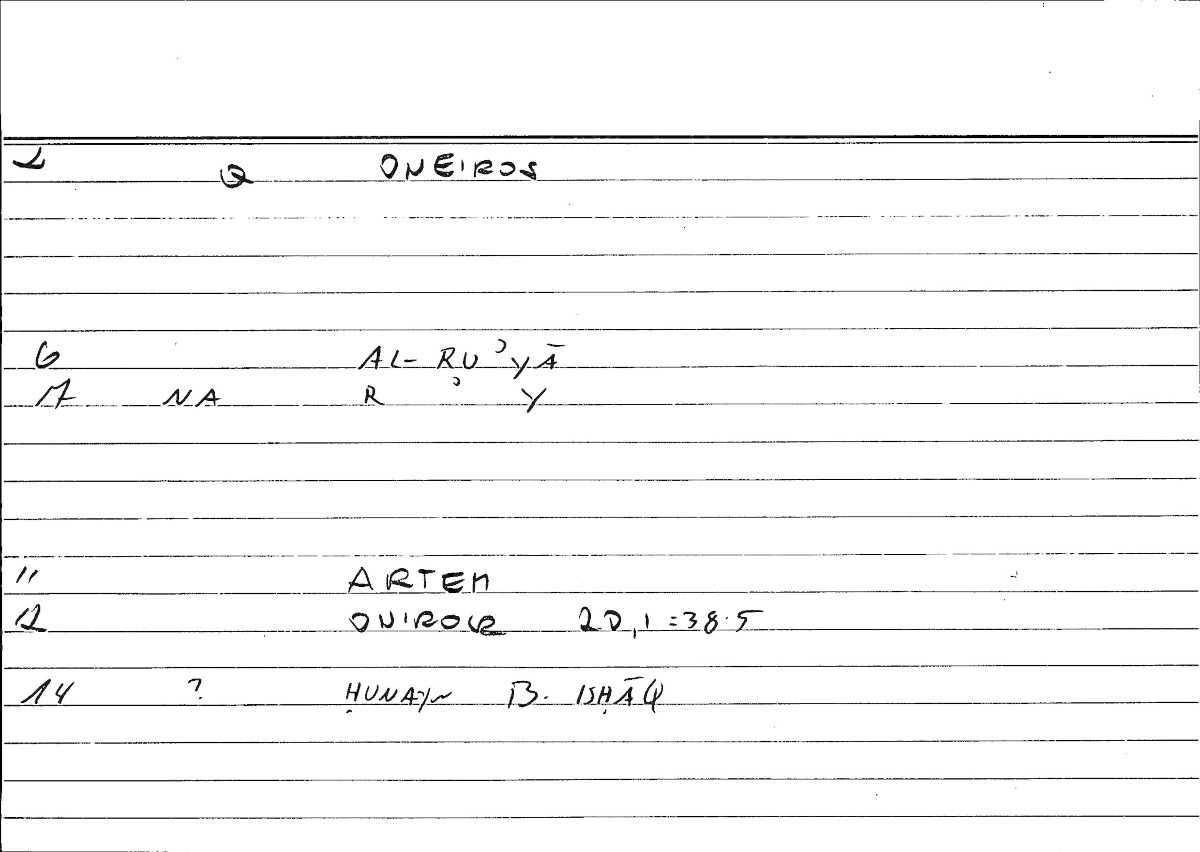 2 Q ONEIROS
6 AL-RUʾYĀ
17 NA R ʾ Y
11 ARTEM
12 ONIROCR 20,1=38.5
14 ? ḤUNAYN B. ISḤĀQ